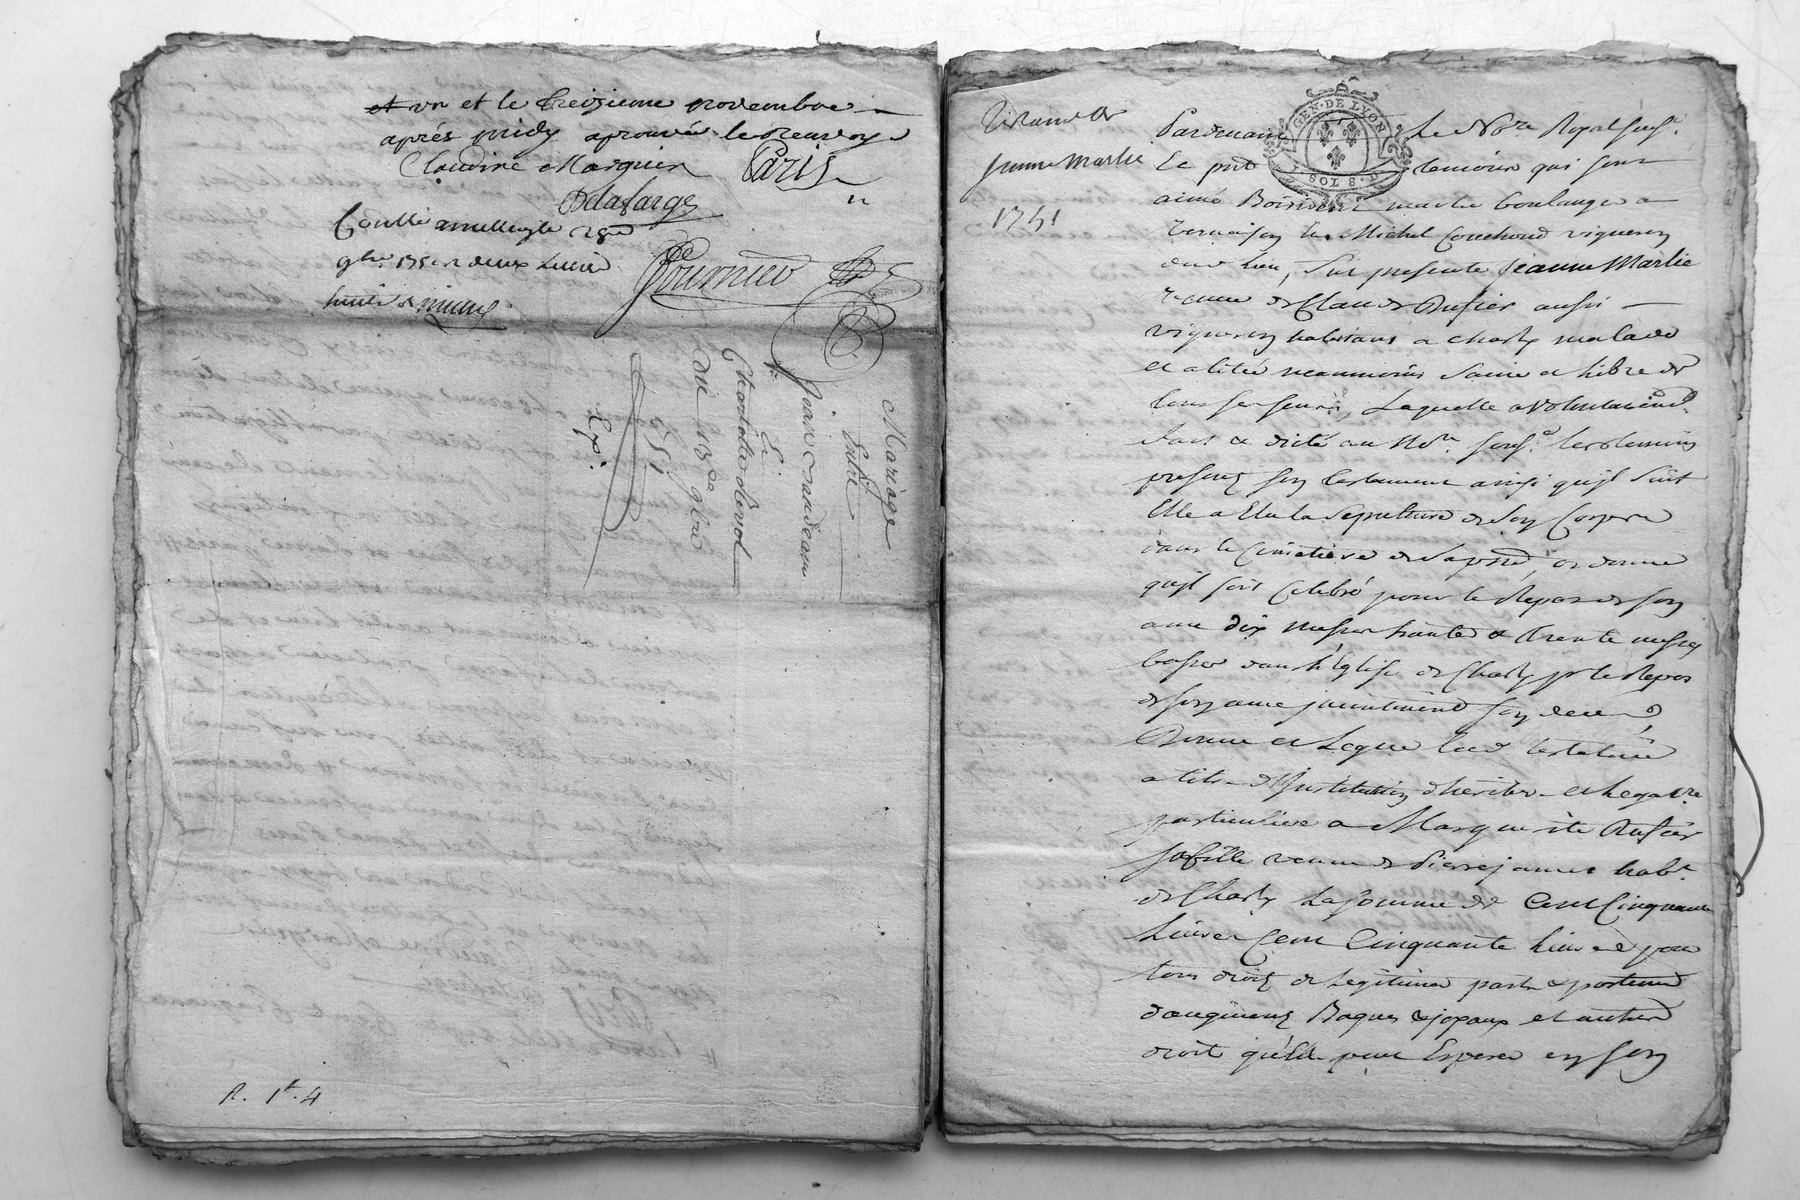 et un et le treizieme novembre
après midy aprouvé le renvoy
Claudine Marguier Paris
Delafarge
Controllé a
9bre 1751 deux livres
huit s
Fournier
Mariage
Entre
Jean Claudeau
Et
Charlotte
du 13e 9bre
1751
Exp.
R. 1# 4
Jeanne Marlie
1751
GEN. DE LYON
SOLS. D.
Pardevant Le No.re Royal sous.
Le pnt temoins qui sont
aimé Boissieux maitre boulanger a
Vernaison & Michel Couchoud vigneron
dud lieu, fut presente Jeanne Marlie
veuve de Claude Rufier aussi
vigneron habitant a Charly malade
et alitée neanmoins saine et libre de
tous ses sens, Laquelle a volontairemt.
fait & dicté au No.re sous.é les temoins
presens son testament ainsi qu'il suit
Elle a Elu la sepulture de son Corps
dans le Cimetiere de sa pnd, ordonne
qu'il soit Celebré pour le Repos de son
ame dix messes hautes & trente messes
basses dans l'Eglise de Charly pr le Repos
de son ame son deced
Donne et Legue lad testatrice
a titre d'Institution d'heritiere et Legat.re
particuliere a Marguerite Rufier
sa fille veuve de Pierre James habt.
de Charly La somme de Cent Cinquante
Livres Cent Cinquante livres pour
tous droits de Legitime parts & portions
d'augment Bagues & joyaux et autres
droits qu'elle peut Esperer en son